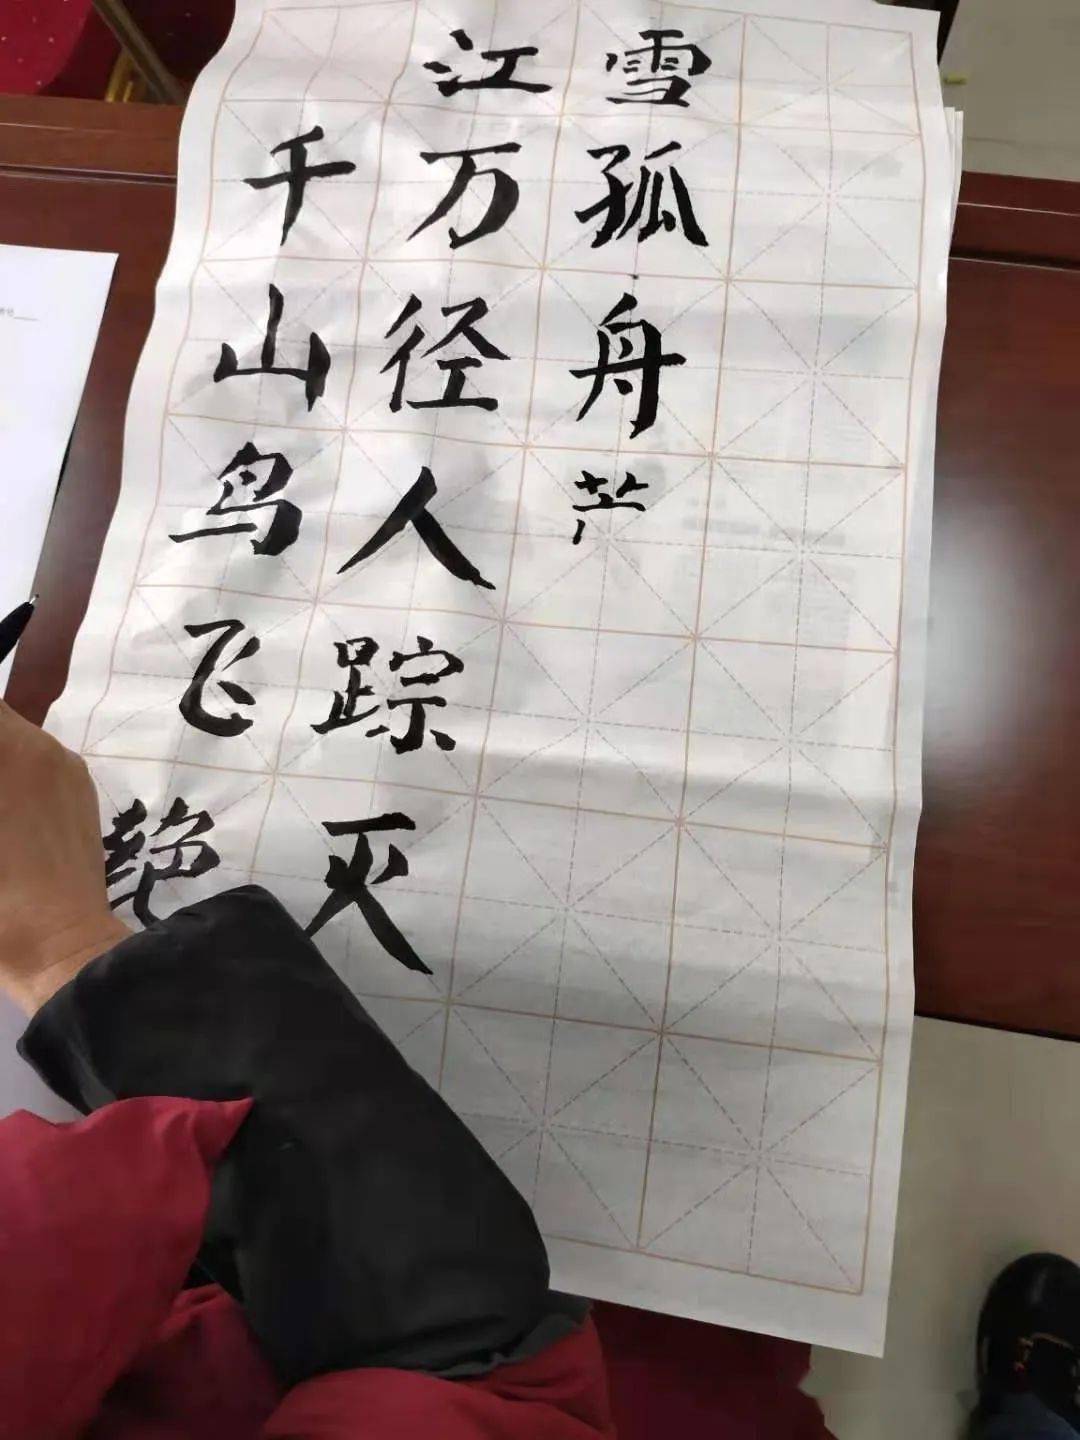 江雪
千山鸟飞绝
万径人踪灭
孤舟